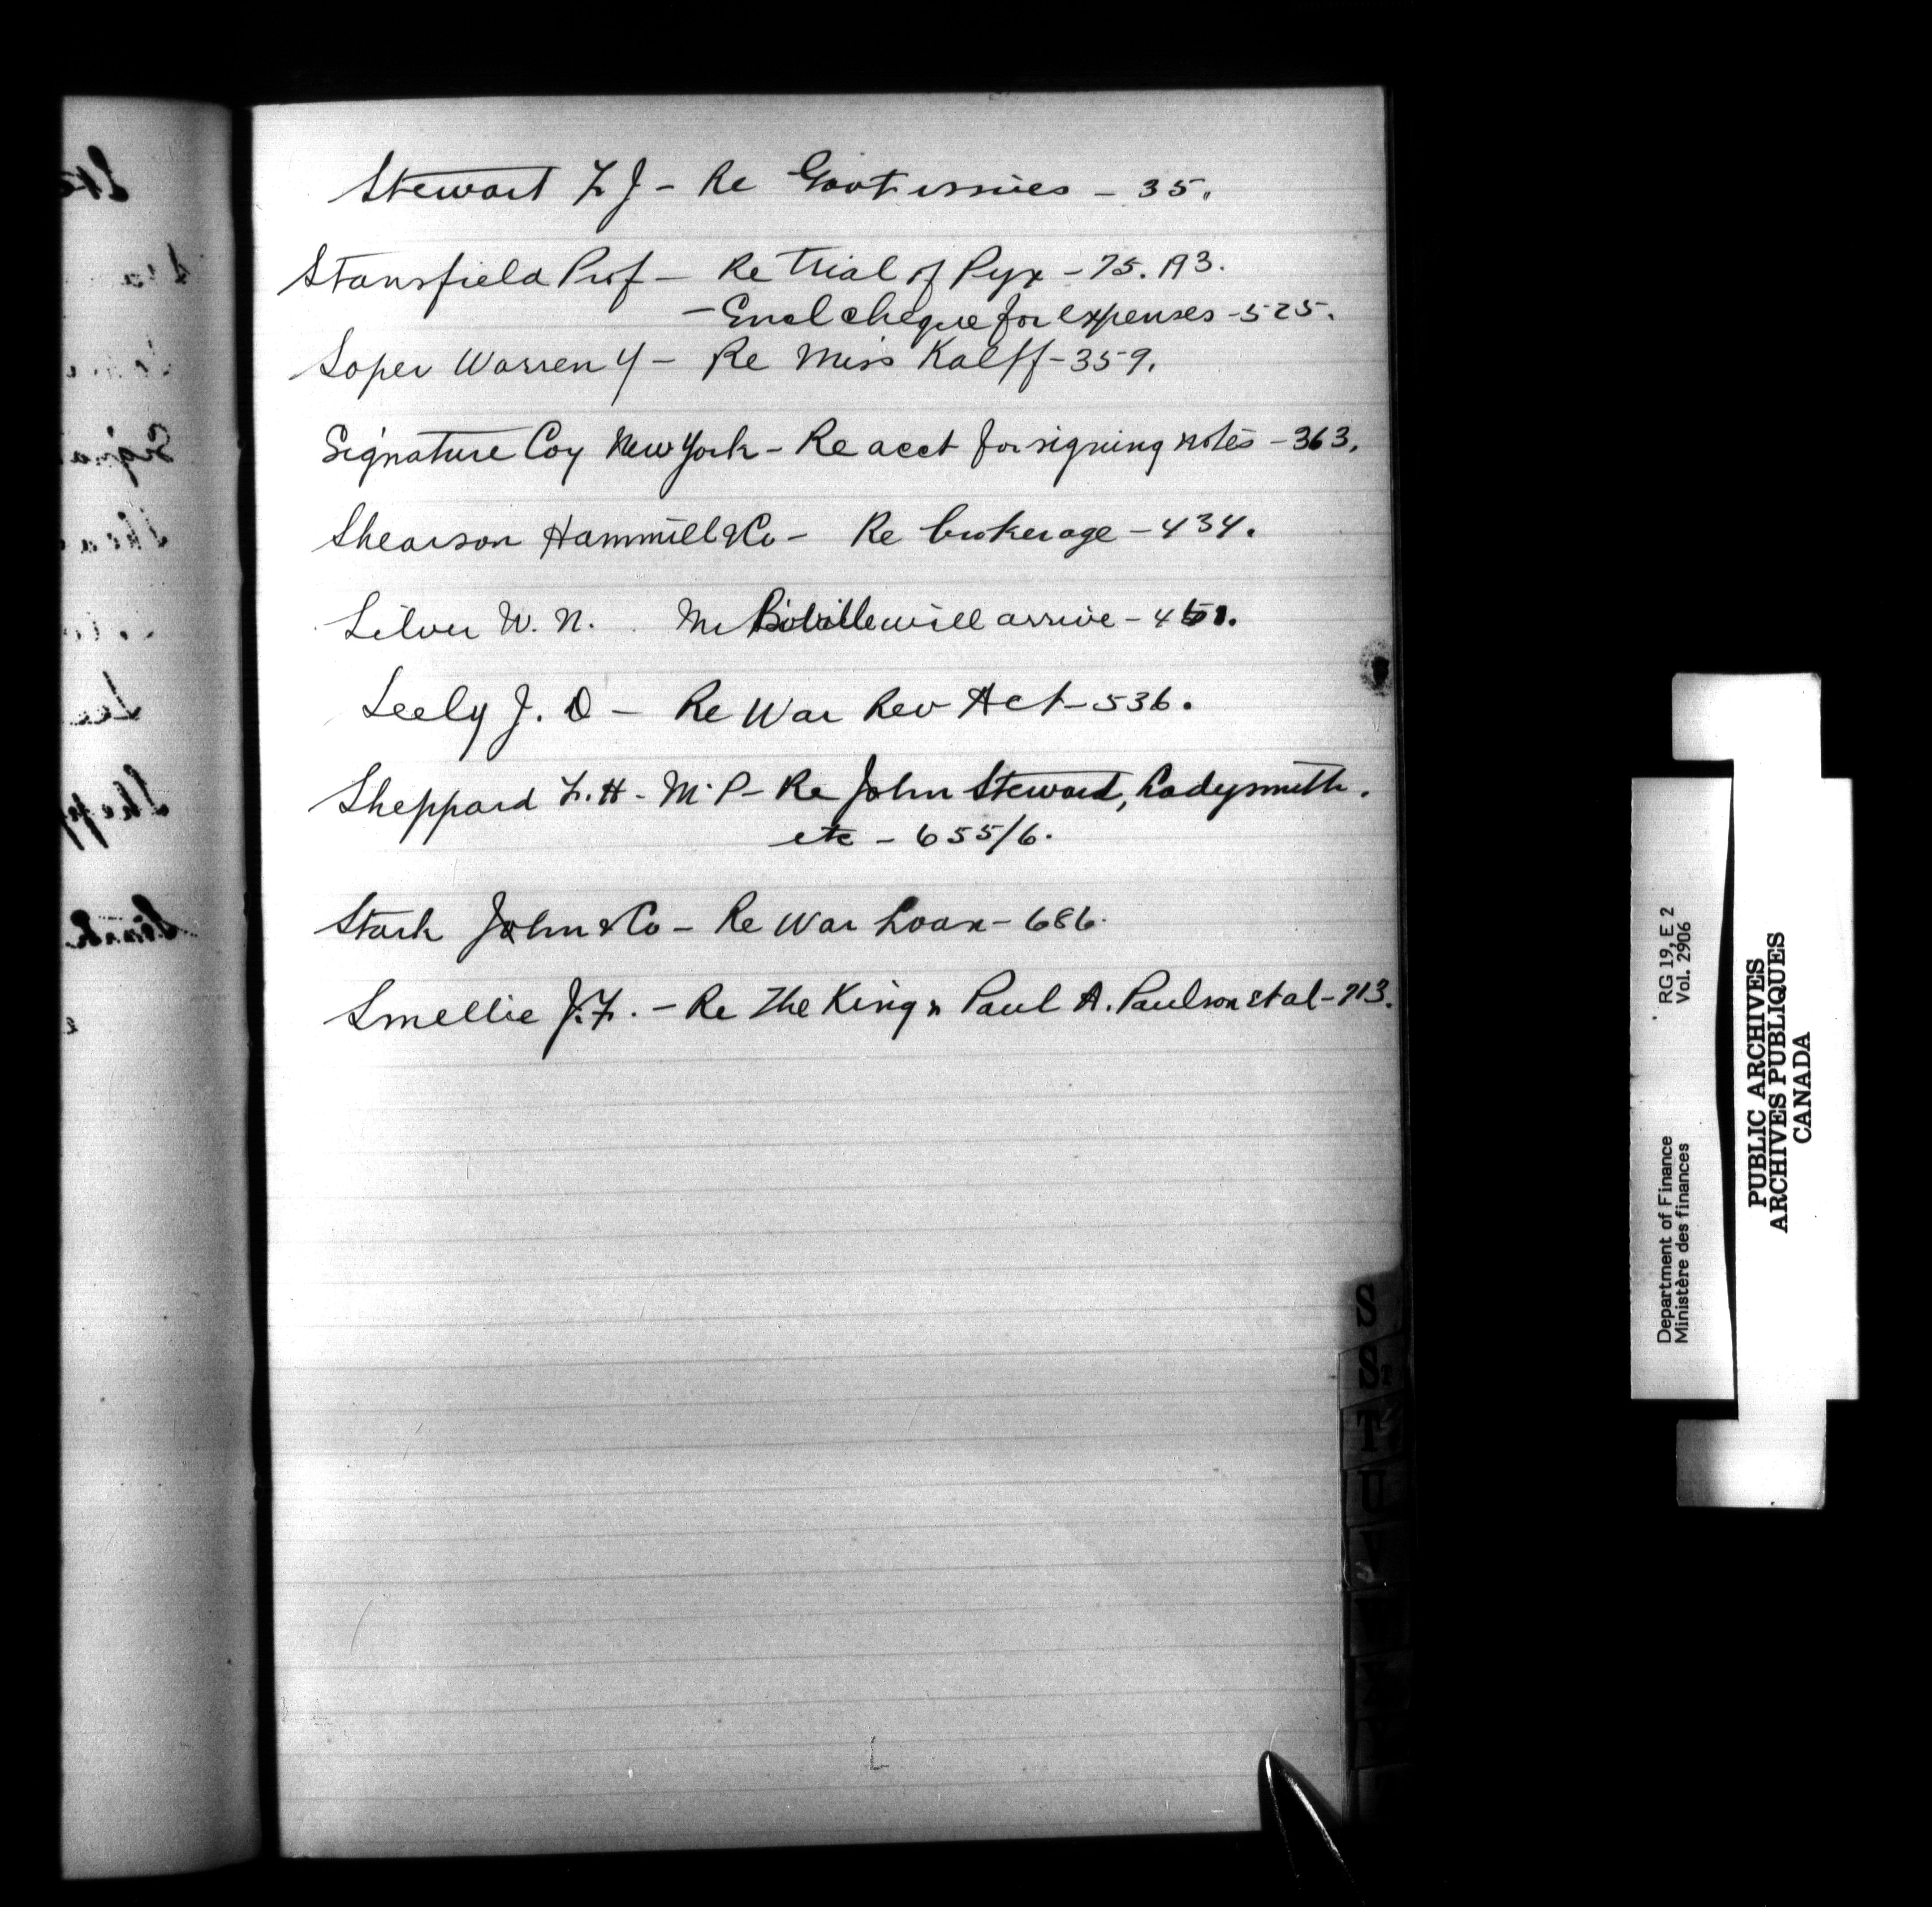 Stewart F J - Re Govt issues - 35.
Stansfield Prof - Re Trial of Pyx - 75. A3.
- Encl cheque for expenses - 525.
Soper Warren Y - Re Miss Kalff - 359.
Signature Coy New York - Re acct for signing notes - 363.
Shearson Hammill & Co - Re brokerage - 434.
Silver W. N. Mr will arrive -
Seely J. D - Re War Rev Act - 536.
Sheppard F. H - M.P - Re John Steward, Ladysmith.
etc - 655/6.
Stark John & Co - Re War Loan - 686.
Smellie J. F. - Re The King v Paul A. Paulson et al - 713.
S
ST
T
U
V
Department of Finance RG 19, E 2
Ministère des finances Vol. 2906
PUBLIC ARCHIVES
ARCHIVES PUBLIQUES
CANADA